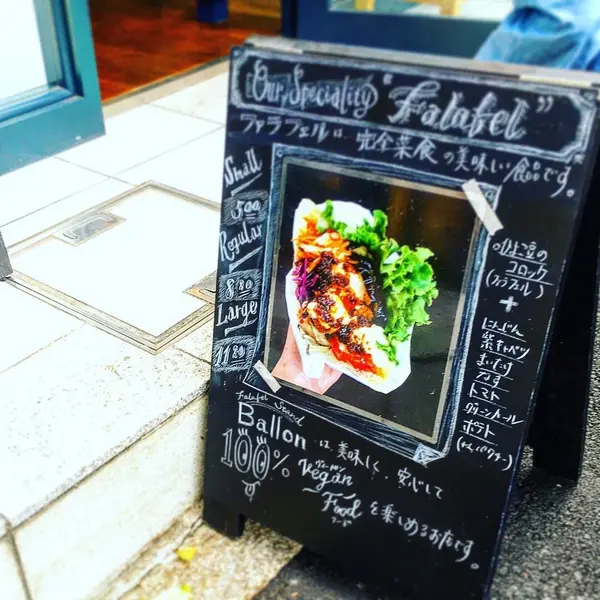 Our Speciality "Falafel"
ファラフェルは、完全菜食の美味しい食品です。
Small
500
Regular
880
Large
1180
ひよこ豆の
コロッケ
(ファラフェル)
+
にんじん
紫キャベツ
まいたけ
ナす
トマト
グリーンケール
ポテト
Falafel Stand
Ballon は美味しく、安心して
100% Vegan
ヴィーガン
Food を楽しめるお店です。
フード